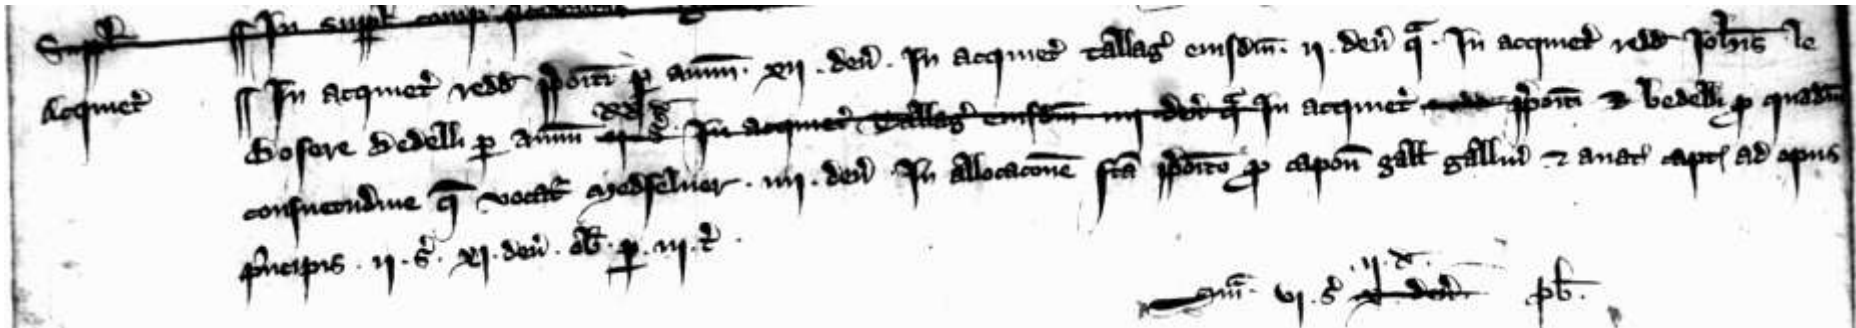 Suppl In suppl comp
Acquiet In acquiet redd ppoiti p annu. xii. den. In acquiet tallag eiusdm. ii. den q. In acquiet redd Johis le
Bosere Bedelli p annu In acquiet tallag eiusdm iiii den q In acquiet redd ppoiti & bedelli p quadm
consuetudine q vocat medselver. iiii. den. In allocacone fca pposito p capon gall gallin & anat capt ad opus
principis. ii. s. xi. den. ob. p. iii. t.
ii. d.
Sm. vi. s. pb.